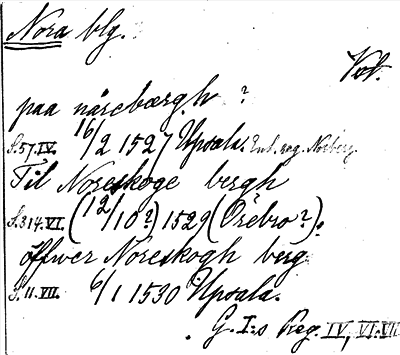 Nora blg.
Vct.
paa nårebærgh ?
S.57.IV. 16/2 1527 Upsala. Enl. reg. Noberg
Til Noreskoge bergh
S.314.VI. (12/10?) 1529 (Örebro?).
öffwer Noreskogh berg.
S. 11. VII. 6/1 1530 Upsala.
G. I:s Reg. IV, VI. VII